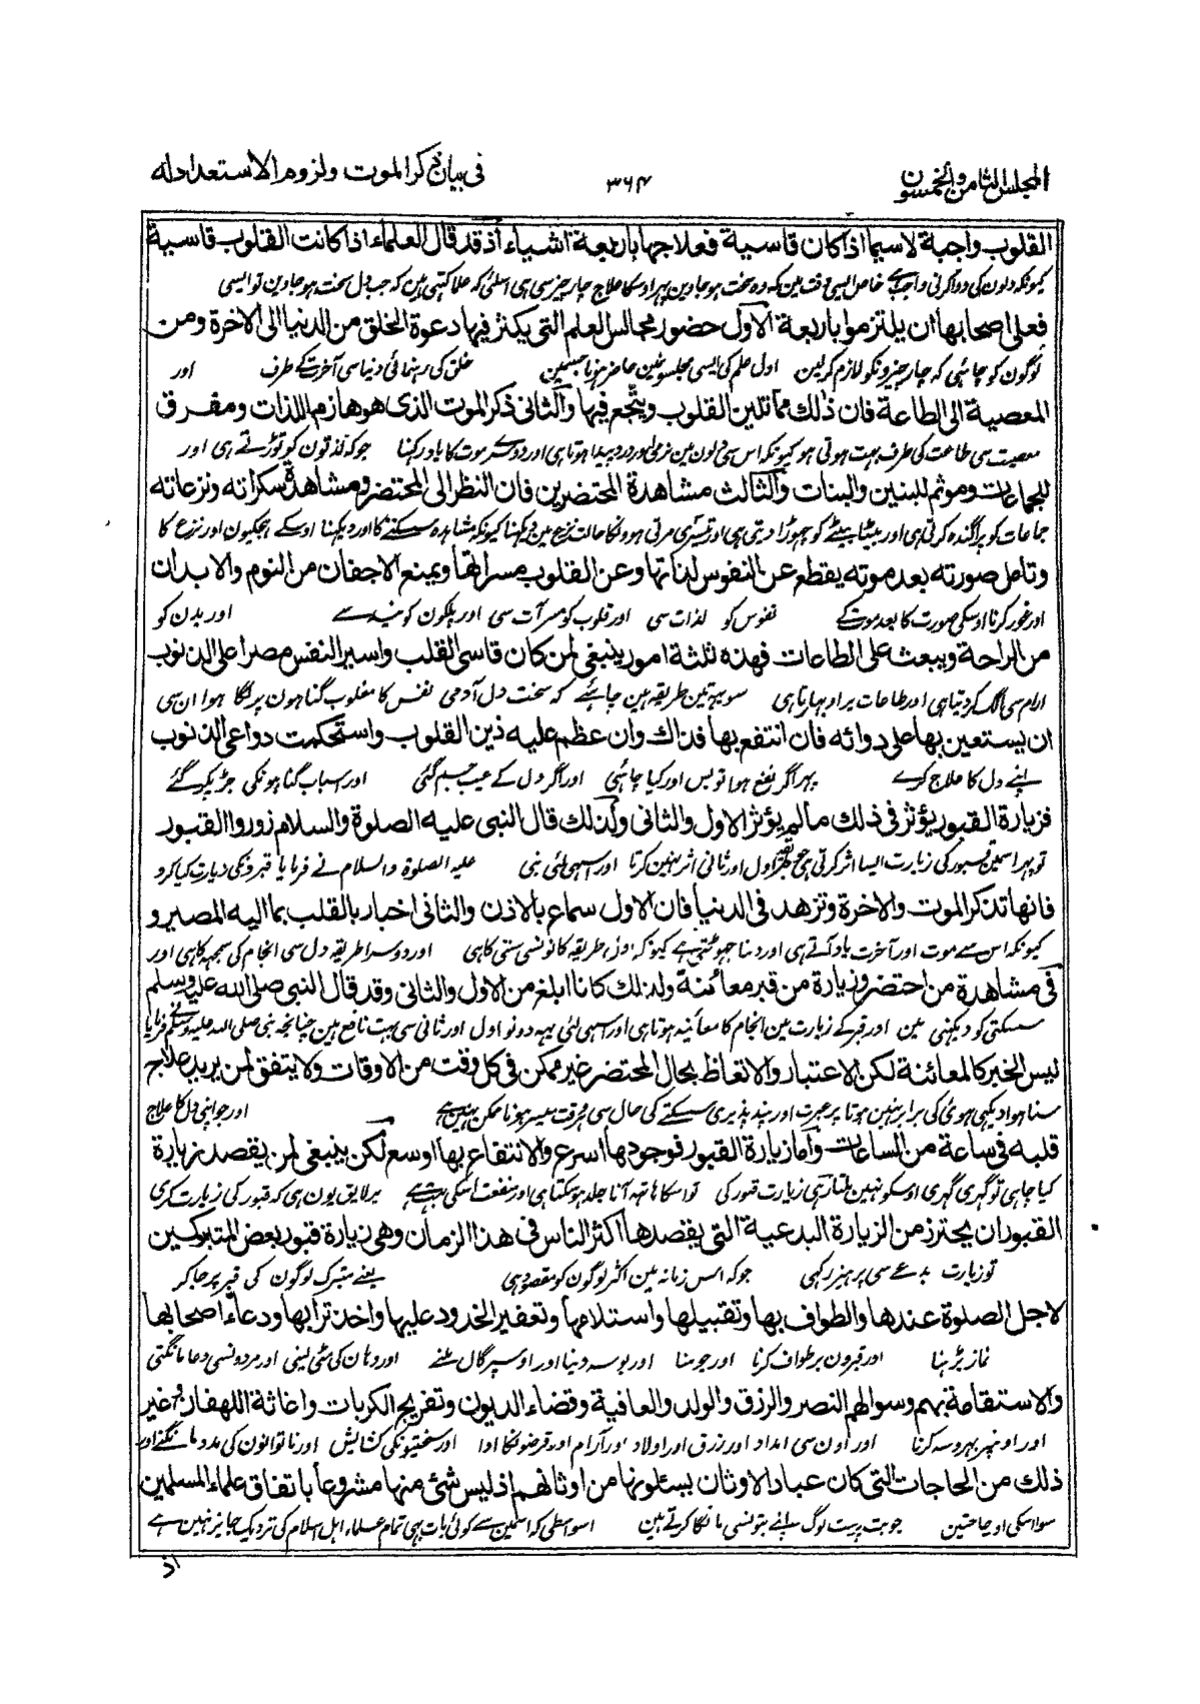 المجلس الثامن والخمسون
٣٦٤
فی بیان ذکر الموت ولزوم الاستعداد له
القلوب واجبة لاسیما اذا کان قاسیة فعلاجها باربعة اشیاء اذ قد قال العلماء اذا کانت القلوب قاسیة
کیونکہ دلون کی دوا کرنی واجب ہے خاص ایسی وقت مین کہ وہ سخت ہو جاوین پہر اوسکا علاج چار چیز سی ہی اسلئی کہ علما کہتی ہین کہ جب دل سخت ہو جاوین تو ایسی
فعلی اصحابها ان یلتزموا باربعة الاول حضور مجالس العلم التی یکثر فیها دعوة الخلق من الدنیا الی الاخرة ومن
لوگون کو چاہئی کہ چار چیزونکو لازم کر لین اول علم کی ایسی مجلسونمین حاضر ہونا جسمین خلق کی رہنمائی دنیا سی آخرت کے طرف اور
المعصیة الی الطاعة فان ذلك مما تلین القلوب وینجع فیها والثانی ذکر الموت الذی هو هازم اللذات ومفرق
معصیت سی طاعت کی طرف بہت ہوتی ہو کیونکہ اس سی دلون مین نرمی اور درد پیدا ہوتا ہی اور دوسرے موت کا یاد رکہنا جو کہ لذتون کو توڑتے ہی اور
للجماعات وموتم للبنین والبنات والثالث مشاهدة المحتضرین فان النظر الی المحتضر ومشاهدة سکراته ونزعاته
جماعات کو پراگندہ کرتی ہی اور بیٹا بیٹے کو چہوڑا دیتی ہی اور تیسری مرتی ہوونکا حالت نزع مین دیکہنا کیونکہ مشاہدہ سسکنے کا اور دیکہنا اوسکے ہچکیون اور نزع کا
وتامل صورته بعد موته یقطع عن النفوس لذاتها وعن القلوب مسراتها ویمنع الاجفان من النوم والابدان
اور غور کرنا اوسکی صورت کا بعد موت کے نفوس کو لذات سی اور قلوب کو مسرآت سی اور پلکون کو نیند سے اور بدن کو
من الراحة ویبعث علی الطاعات فهذه ثلثة امور ینبغی لمن کان قاسی القلب واسیر النفس مصرا علی الذنوب
ارام سی الگ کر دیتا ہی اور طاعات پر اوبہارتا ہی سو یہہ تین طریقہ ہین چاہئے کہ سخت دل آدمی نفس کا مغلوب گناہون پر لگا ہوا ان سی
ان یستعین بها علی دوائه فان انتفع بها فذاك وان عظم علیه ذین القلوب واستحکمت دواعی الذنوب
اپنے دل کا علاج کرے پہر اگر نفع ہوا تو بس اور کیا چاہئی اور اگر دل کے عیب جم گئی اور اسباب گناہونکی جڑ پکڑ گئے
فزیارة القبور یؤثر فی ذلك ما لم یؤثر الاول والثانی ولذلك قال النبی علیه الصلوة والسلام زوروا القبور
تو پہر اسمین قبور کی زیارت ایسا اثر کرتی ہی اول اور ثانی اثر نہین کرتا اور اسہی لئی نبی علیہ الصلوة والسلام نے فرمایا قبرونکی زیارت کیا کرو
فانها تذکر الموت والاخرة وتزهد فی الدنیا فان الاول سماع بالاذن والثانی اخبار بالقلب بما الیه المصیر و
کیونکہ اس سے موت اور آخرت یاد آتے ہی اور دنیا چہوٹتی ہے کیونکہ اول طریقہ کانونسی سنتی کا ہی اور دوسرا طریقہ دل سی انجام کی سمجہہ کا ہی اور
فی مشاهدة من احتضر وزیارة من قبر معائنة ولذلك کانا ابلغ من الاول والثانی وقد قال النبی صلی الله علیه وسلم
سسکتی کو دیکہنی مین اور قبر کے زیارت مین انجام کا معاینہ ہوتا ہی اور اسہی لئی یہہ دونو اول اور ثانی سی بہت نافع ہین چنانچہ نبی صلی اللہ علیہ وسلم فرمایا
لیس الخبر کالمعائنة لکن الاعتبار والاتعاظ بحال المحتضر غیر ممکن فی کل وقت من الاوقات ولا یتفق لمن یرید علاج
سنا ہوا دیکہی ہوئی کی برابر نہین ہوتا پر عبرت اور پند پذیری سسکتے کی حال سی ہر وقت میسر ہونا ممکن نہین ہے اور جو اپنی دل کا علاج
قلبه فی ساعة من الساعات واما زیارة القبور فوجودها اسرع والانتفاع بها اوسع لکن ینبغی لمن یقصد زیارة
کیا چاہی تو گہڑی گہڑی اوسکو نہین ملتا رہی زیارت قبور کی تو اسکا ہاتہہ آنا جلد ہو سکتا ہی اور منفعت اسکی بہت ہے پر لایق یون ہی کہ قبور کی زیارت کری
القبور ان یحترز من الزیارة البدعیة التی یقصدها اکثر الناس فی هذا الزمان وهی زیارة قبور بعض المتبرکین
تو زیارت بدعے سی پرہیز رکہی جو کہ اس زمانہ مین اکثر لوگون کو مقصود ہی یعنے متبرک لوگون کی قبر پر جا کر
لاجل الصلوة عندها والطواف بها وتقبیلها واستلامها وتعفیر الخدود علیها واخذ ترابها ودعاء اصحابها
نماز پڑہنا اور قبرون پر طواف کرنا اور چومنا اور بوسہ دینا اور اوسپر گال ملنے اور وہان کی مٹی لینی اور مردونسی دعا مانگتی
والاستقامة بهم وسوالهم النصر والرزق والولد والعافیة وقضاء الدیون وتفریج الکربات واغاثة اللهفان وغیر
اور اونپر بہروسہ کرنا اور اون سی امداد اور رزق اور اولاد اور آرام اور قرضونکا ادا اور سختیونکی کشایش اور ناتوانون کی مدد مانگنے اور
ذلك من الحاجات التی کان عباد الاوثان یسئلونها من اوثانهم اذ لیس شئ منها مشروعا باتفاق علماء المسلمین
سوا اسکی اور حاجتین جو بت پرست لوگ اپنے بتونسی مانگا کرتے ہین اسواسطی کہ اسمین سے کوئی بات بہی تمام علماء اہل اسلام کی نزدیک جایز نہین ہے
اذ